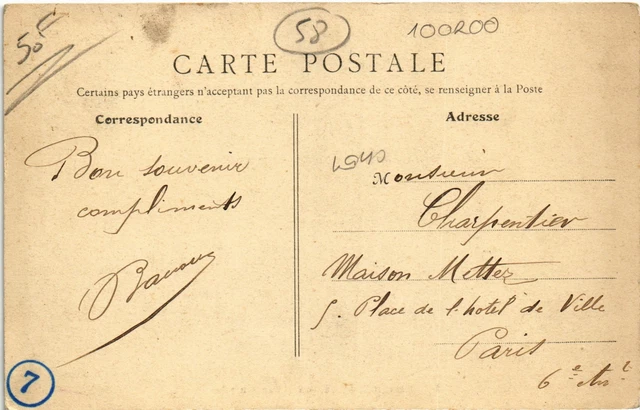 50F
58
100200
CARTE POSTALE
Certains pays étrangers n'acceptant pas la correspondance de ce côté, se renseigner à la Poste
Correspondance
Adresse
Bon souvenir
compliments
Monsieur
Charpentier
Maison Metter
5. Place de l'hotel de Ville
Paris
6e Arr
7